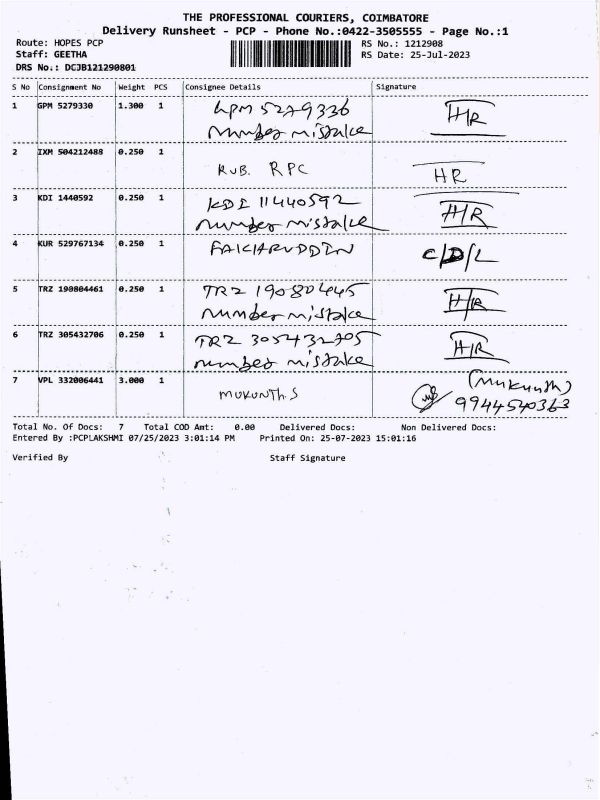 THE PROFESSIONAL COURIERS, COIMBATORE
Delivery Runsheet - PCP - Phone No.:0422-3505555 - Page No.:1
Route: HOPES PCP RS No.: 1212908
Staff: GEETHA RS Date: 25-Jul-2023
DRS No.: DCJB121290801
S No Consignment No Weight PCS Consignee Details Signature
1 GPM 5279330 1.300 1 GPM 5279336 H/R
number mistake
2 IXM 504212488 0.250 1
RUB. RPC HR
3 KDI 1440592 0.250 1 KDI 11440592 H/R
number mistake
4 KUR 529767134 0.250 1 FAKHARUDDIN C/D/L
5 TRZ 190804461 0.250 1 TRZ 190804445 H/R
number mistake
6 TRZ 305432706 0.250 1 TRZ 305432705 H/R
number mistake
7 VPL 332006441 3.000 1 MUKUNTH.S (Mukunth)
9944540363
Total No. Of Docs: 7 Total COD Amt: 0.00 Delivered Docs: Non Delivered Docs:
Entered By :PCPLAKSHMI 07/25/2023 3:01:14 PM Printed On: 25-07-2023 15:01:16
Verified By Staff Signature